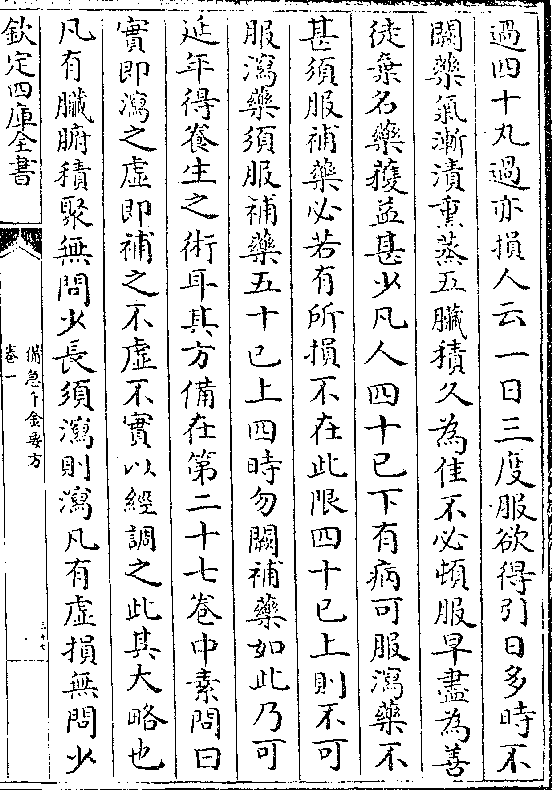 過四十丸過亦損人云一日三度服欲得引日多時不
闕藥氣漸漬熏蒸五臟積久為佳不必頓服早盡為善
徒棄名藥獲益甚少凡人四十已下有病可服瀉藥不
甚須服補藥必若有所損不在此限四十已上則不可
服瀉藥須服補藥五十已上四時勿闕補藥如此乃可
延年得養生之術耳其方備在第二十七卷中素問曰
實即瀉之虛即補之不虛不實以經調之此其大略也
凡有臟腑積聚無問少長須瀉則瀉凡有虛損無問少
欽定四庫全書
備急千金要方
卷一